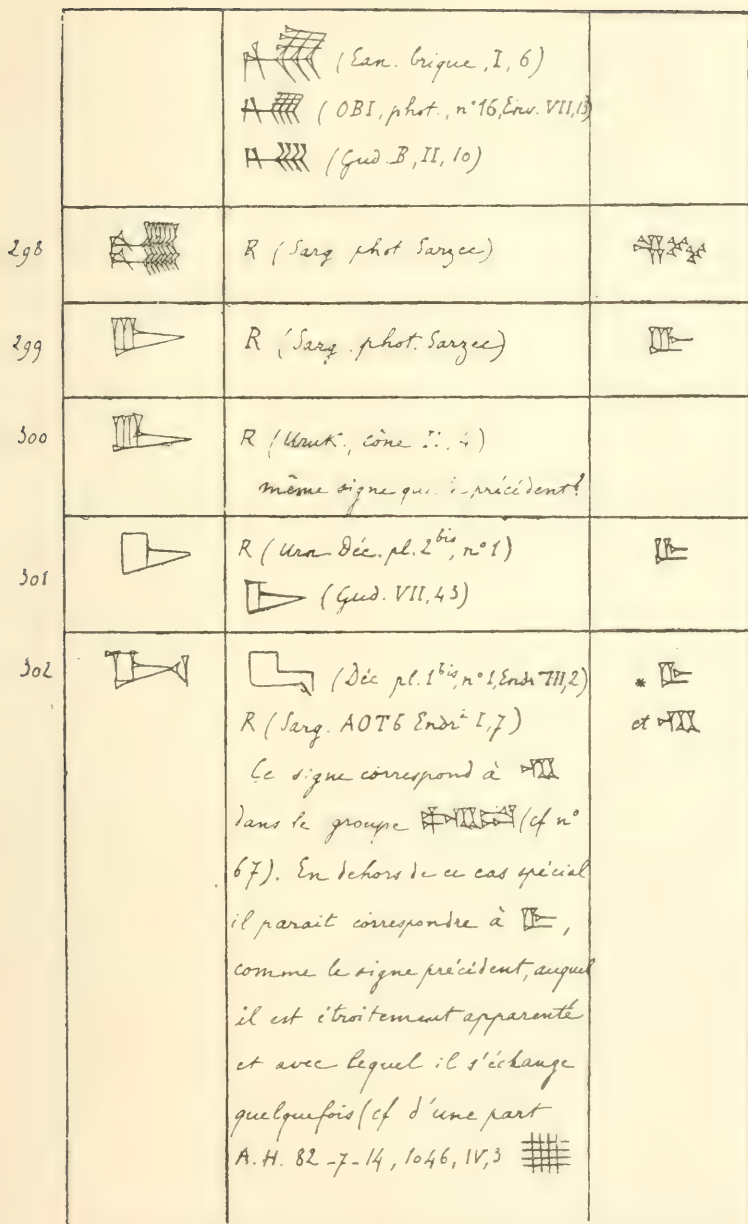 (Ean. brique, I, 6)
(OBI, phot., n° 16, Env. VII, 13)
(Gud. B, II, 10)
298 R (Sarg phot Sarzec)
299 R (Sarg. phot. Sarzec)
300 R (Uruk., cône II, 4)
même signe que le précédent?
301 R (Urn Déc. pl. 2 bis, n° 1)
(Gud. VII, 43)
302 (Déc pl. 1 bis, n° 1, Endrt III, 2) *
R (Sarg. AOT6 Endrt I, 7) et
Ce signe correspond à
dans le groupe (cf n°
67). En dehors de ce cas spécial
il parait correspondre à ,
comme le signe précédent, auquel
il est étroitement apparenté
et avec lequel il s'échange
quelquefois (cf d'une part
A.H. 82-7-14, 1046, IV, 3